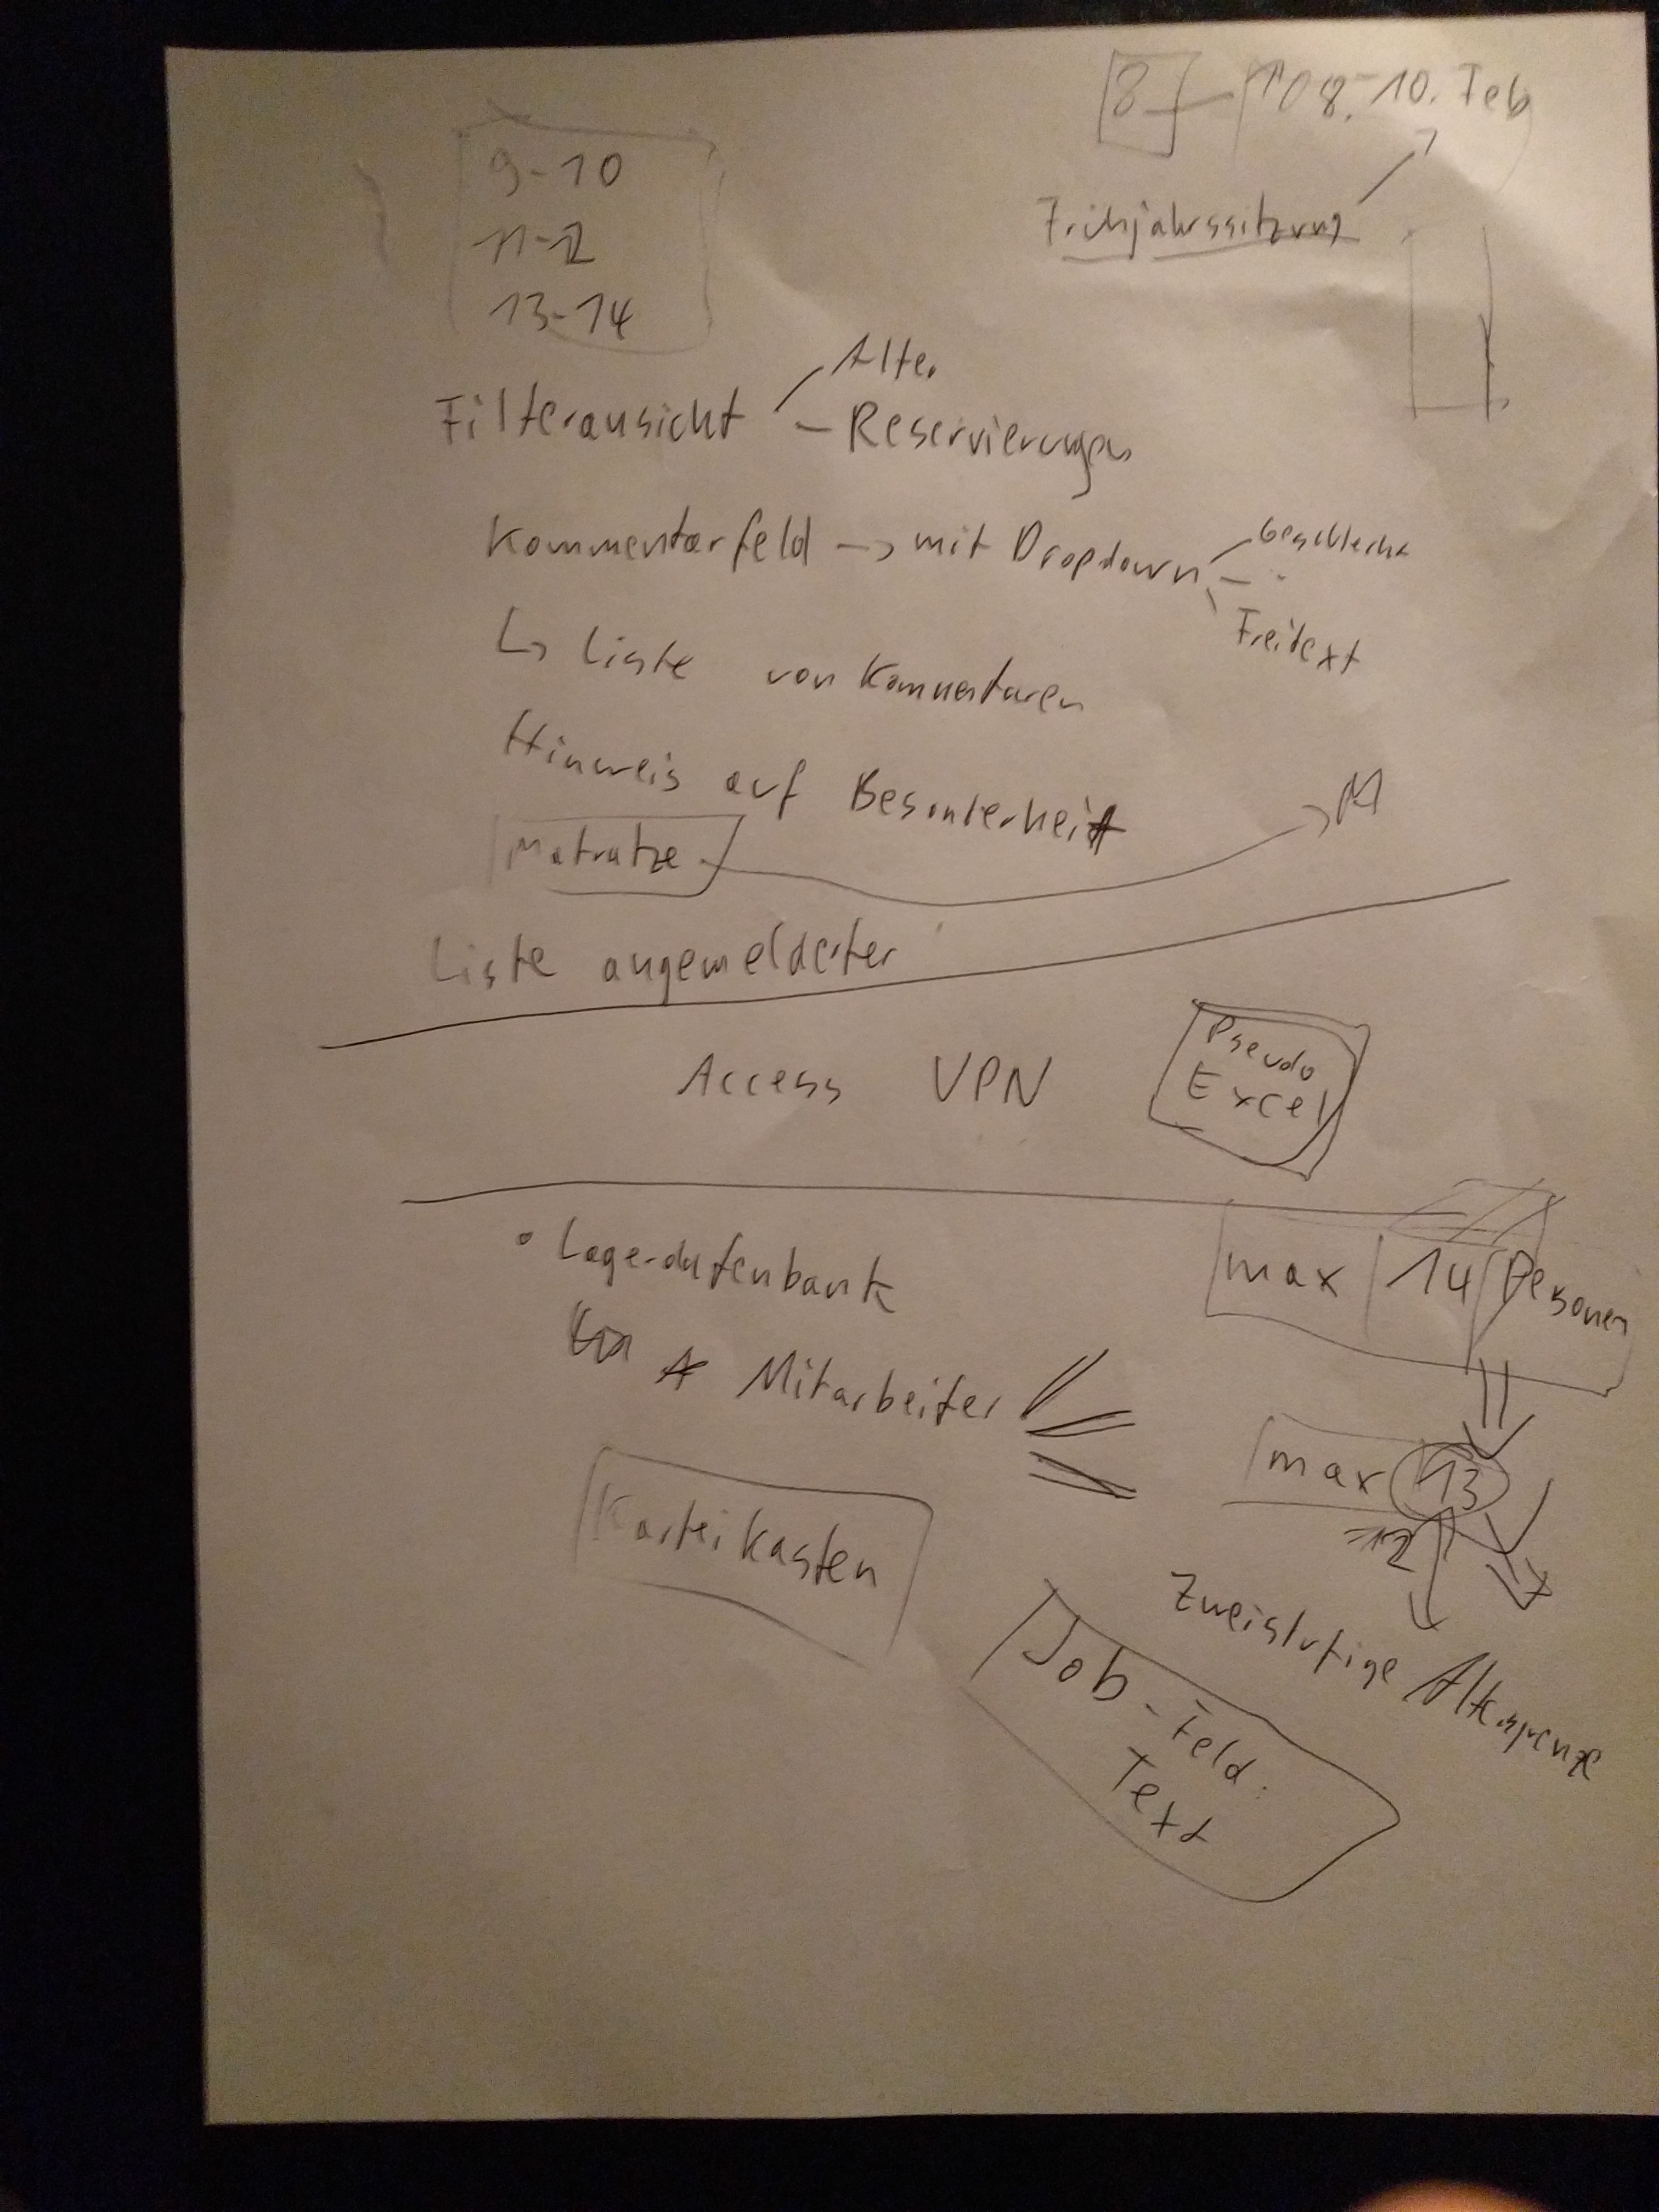 8 - 08.-10. Feb
Frühjahrssitzung
9-10
11-12
13-14
Alter
Filteransicht - Reservierungen
Kommentarfeld -> mit Dropdown - Geschlecht
Freitext
↳ Liste von Kommentaren
Hinweis auf Besonderheit
Matratze -> M
Liste angemeldeter
Access VPN
Pseudo
Excel
• Lagerdatenbank
max 14 Personen
Mitarbeiter
max 13
12
Karteikasten
Zweistufige Altersgrenze
Job-Feld:
Text